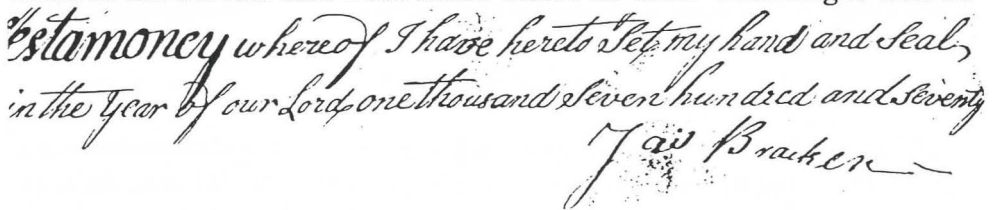 Testamoney whereof I have hereto Set my hand and Seal,
in the Year of our Lord one thousand Seven hundred and Seventy
Jas Bracken